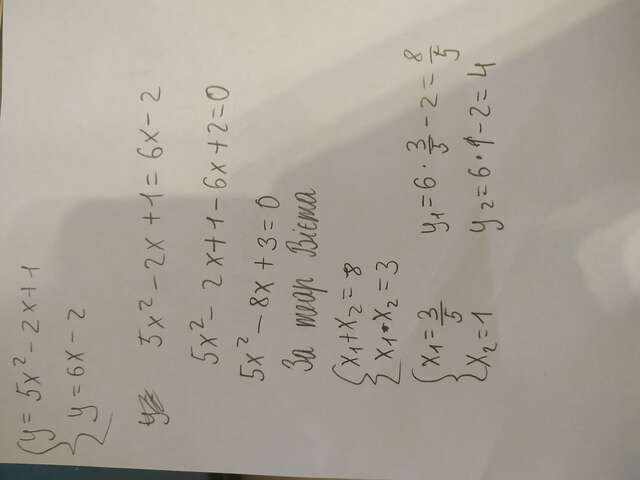 { y = 5x² - 2x + 1
y = 6x - 2
5x² - 2x + 1 = 6x - 2
5x² - 2x + 1 - 6x + 2 = 0
5x² - 8x + 3 = 0
За теор Вієта
{ x₁ + x₂ = 8
x₁ • x₂ = 3
{ x₁ = 3/5 y₁ = 6 · 3/5 - 2 = 8/5
x₂ = 1 y₂ = 6 · 1 - 2 = 4